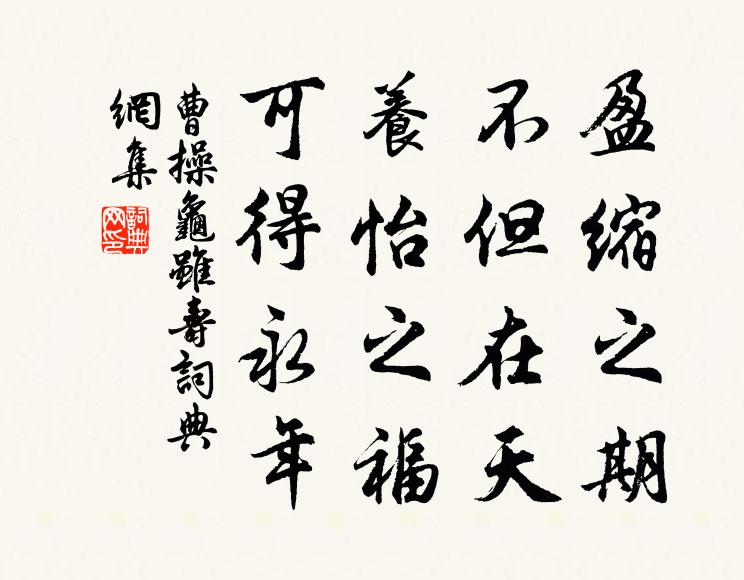 盈縮之期
不但在天
養怡之福
可得永年
曹操龜雖壽詞典
網集
詞典網印